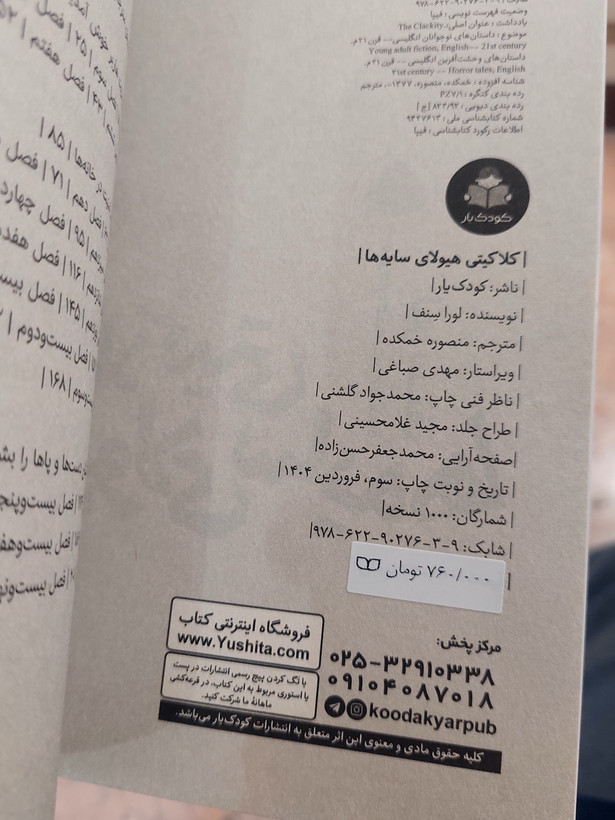 وضعیت فهرست نویسی : فیپا
یادداشت : عنوان اصلی: The Clackity.
موضوع : داستان‌های نوجوانان انگلیسی-- قرن ۲۱م.
Young adult fiction, English-- 21st century
داستان‌های وحشت‌آفرین انگلیسی -- قرن ۲۱م.
21st century -- Horror tales, English
شناسه افزوده : خمکده، منصوره، ۱۳۷۷-، مترجم
رده بندی کنگره : PZ۷/۱
رده بندی دیویی : ۸۲۳/۹۲ [ج]
شماره کتابشناسی ملی : ۹۴۲۷۶۱۳
اطلاعات رکورد کتابشناسی : فیپا
کودک‌یار
| کلاکیتی هیولای سایه‌ها |
| ناشر: کودک‌یار |
| نویسنده: لورا سِنف |
| مترجم: منصوره خمکده |
| ویراستار: مهدی صباغی |
| ناظر فنی چاپ: محمدجواد گلشنی |
| طراح جلد: مجید غلامحسینی |
| صفحه‌آرایی: محمدجعفر حسن‌زاده |
| تاریخ و نوبت چاپ: سوم، فروردین ۱۴۰۴ |
| شمارگان: ۱۰۰۰ نسخه |
| شابک: ۹-۳-۹۰۲۷۶-۶۲۲-۹۷۸ |
۷۶۰/۰۰۰ تومان
مرکز پخش:
۰۲۵-۳۲۹۱۰۳۳۸
۰۹۱۰۴۰۸۷۰۱۸
koodakyarpub
فروشگاه اینترنتی کتاب
www.Yushita.com
با تگ کردن پیج رسمی انتشارات در پست
یا استوری مربوط به این کتاب، در قرعه‌کشی
ماهانهٔ ما شرکت کنید.
کلیه حقوق مادی و معنوی این اثر متعلق به انتشارات کودک‌یار می‌باشد.
فصل هفتم |
| ۸۵ |
فصل دهم | ۷۱ | فصل
| ۹۵ | فصل چهارد
| ۱۱۶ | فصل هفد
| ۱۴۵ | فصل بیس
| فصل بیست‌ودوم |
| ۱۶۸ |
دست‌ها و پاها را بش
فصل بیست‌وپنج
فصل بیست‌وهف
فصل بیست‌ونه